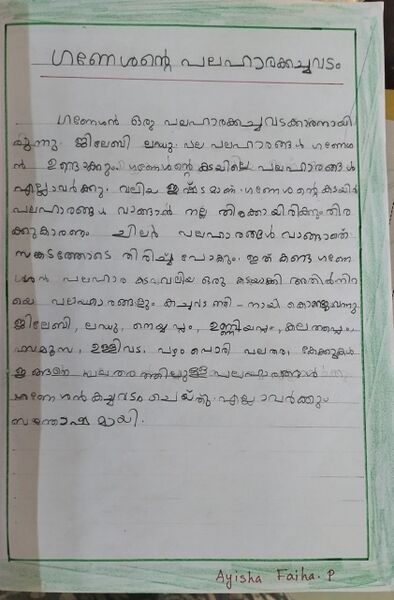 ഗണേശന്റെ പലഹാരക്കച്ചവടം
ഗണേശൻ ഒരു പലഹാരക്കച്ചവടക്കാരനായി
രുന്നു. ജിലേബി ലഡു പല പലഹാരങ്ങൾ ഗണേശ
ൻ ഉണ്ടാക്കും. ഗണേശന്റെ കടയിലെ പലഹാരങ്ങൾ
എല്ലാവർക്കും വലിയ ഇഷ്ടമാണ്. ഗണേശന്റെ കടയിൽ
പലഹാരങ്ങൾ വാങ്ങാൻ നല്ല തിരക്കായിരിക്കും തിര
ക്കുകാരണം ചിലർ പലഹാരങ്ങൾ വാങ്ങാതെ
സങ്കടത്തോടെ തിരിച്ച് പോകും. ഇത് കണ്ട ഗണേ
ശൻ പലഹാര കടവലിയ ഒരു കടയാക്കി അതിൽനിറ
യെ പലഹാരങ്ങളും കച്ചവടത്തി-നായി കൊണ്ടുവന്നു
ജിലേബി, ലഡു, നെയ്യപ്പം, ഉണ്ണിയപ്പം, കലത്തപ്പം
സമൂസ, ഉള്ളിവട, പഴം പൊരി പലതരം, കേക്കുകൾ
ഇങ്ങനെ പലതരത്തിലുള്ള പലഹാരങ്ങൾ
ഗണേശൻ കച്ചവടം ചെയ്തു. എല്ലാവർക്കും
സന്തോഷമായി.
Ayisha Faiha. P